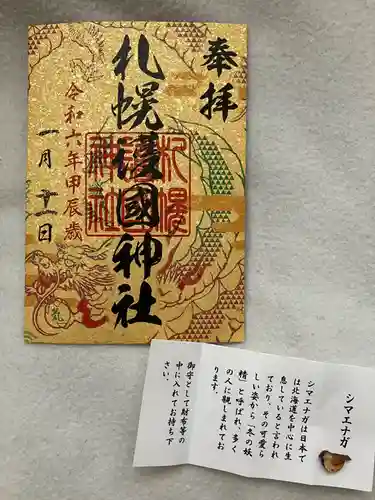 奉拝
札幌護國神社
札幌
護國
神社
令和六年甲辰歳
一月十二日
シマエナガ
シマエナガは日本で
は北海道を中心に生
息していると言われ
ており、その可愛ら
しい姿から「冬の妖
精」と呼ばれ、多く
の人に親しまれてお
ります。
御守として財布等の
中に入れてお持ち下
さい。